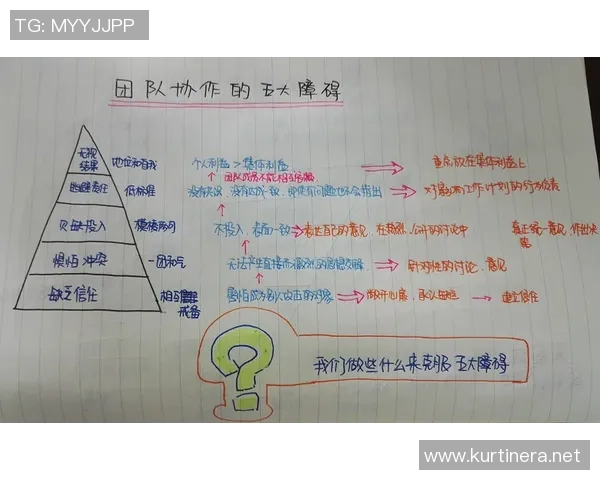 TG: MYYJJPP
团队协作的五大障碍
无视结果 地位和自我 个人利益 > 集体利益 重点放在集体利益上
团队成员不能相互
逃避责任 低标准 没有达成一致，即使有问题也不会指出 对
欠缺投入 模棱两可 不投入，表面一致 表达自己的意见，在激烈、公开的讨论中 真正统一意见，作出决策
惧怕冲突 一团和气 无法产生直接而激烈的思想交锋 针对性的讨论、意见
缺乏信任 相互戒备 害怕成为别人攻击的对象 敞开心扉，承认缺点 建立信任
我们做些什么来克服五大障碍
www.kurtinera.net